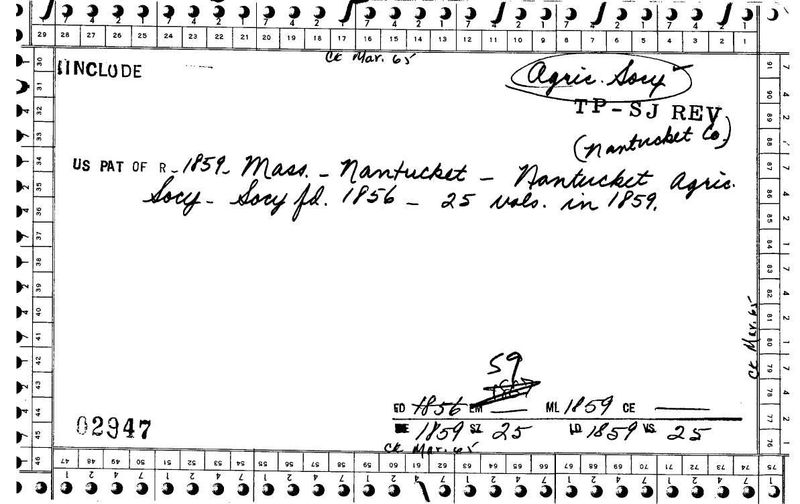 29 28 27 26 25 24 23 22 21 20 19 18 17 16 15 14 13 12 11 10 9 8 7 6 5 4 3 2 1
ck Mar. 65
INCLUDE
Agric. Socy
TP-SJ REV
(Nantucket Co.)
US PAT OF R - 1859 - Mass. - Nantucket - Nantucket Agric.
Socy - Socy fd. 1856 - 25 vols. in 1859.
59
FD 1856 EM ML 1859 CE
02947
DE 1859 SZ 25 LD 1859 VS 25
ck Mar. 65
ck Mar. 65
30 31 32 33 34 35 36 37 38 39 40 41 42 43 44 45 46
47 48 49 50 51 52 53 54 55 56 57 58 59 60 61 62 63 64 65 66 67 68 69 70 71 72 73 74 75
76 77 78 79 80 81 82 83 84 85 86 87 88 89 90 91